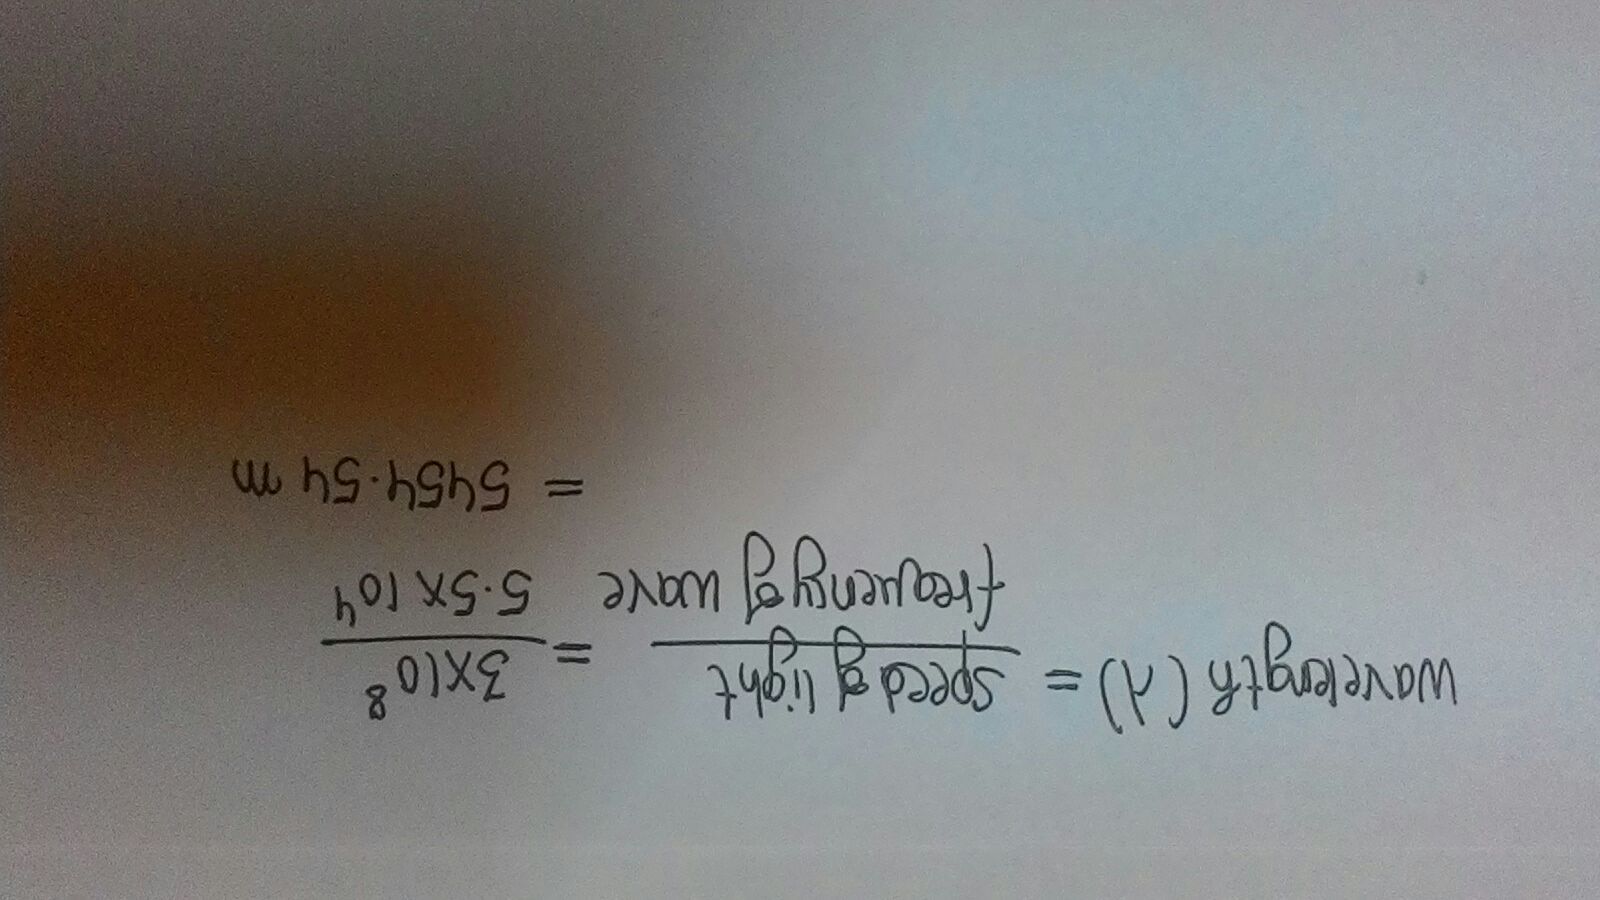 wavelength (λ) = speed of light / frequency of wave = 3x10⁸ / 5.5x10⁴
= 5454.54 m